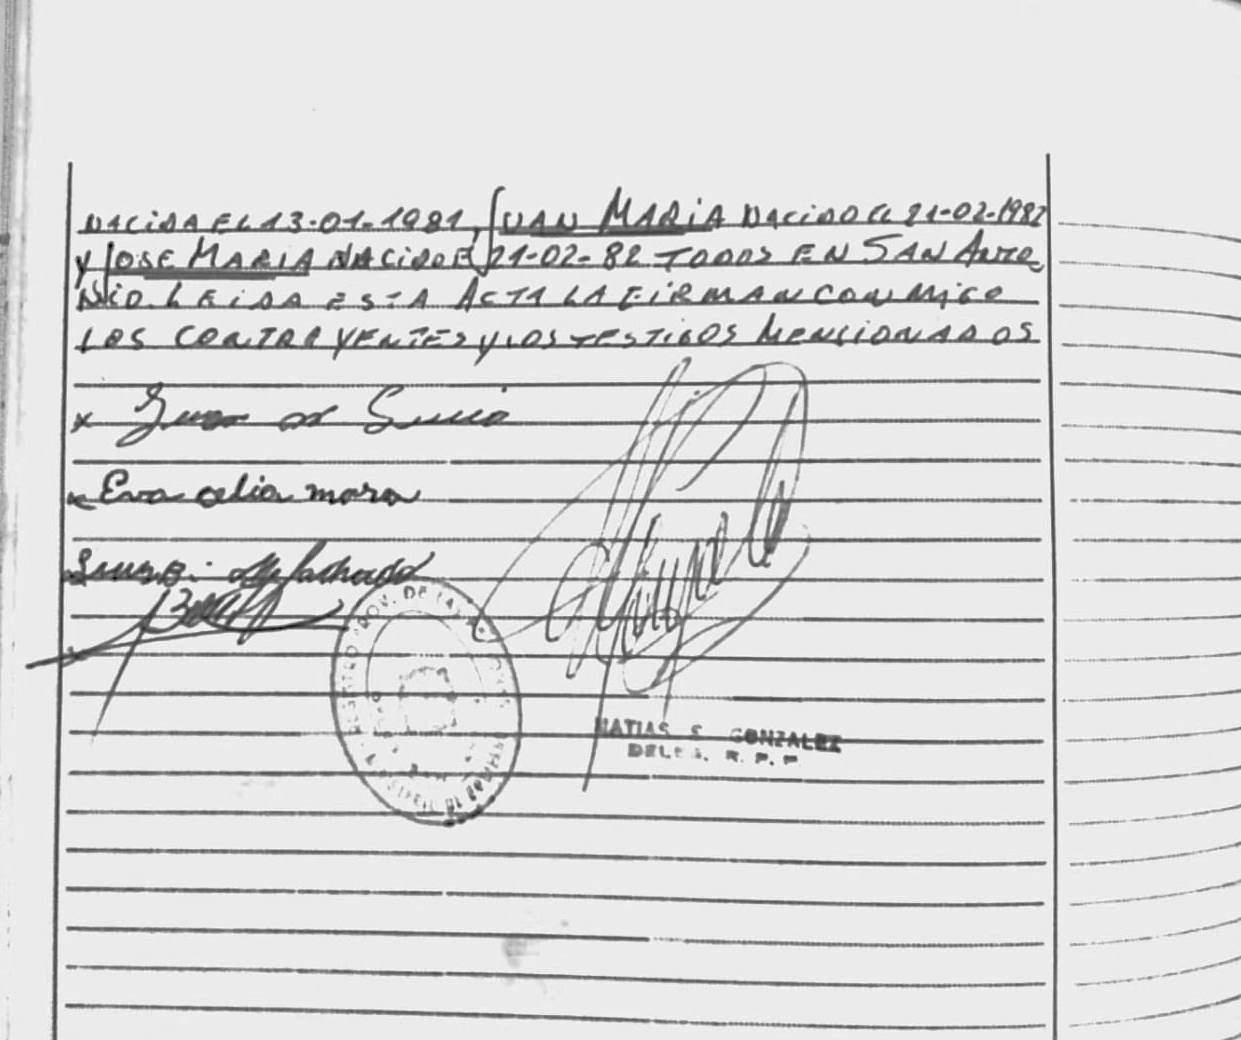 NACIDA EL 13-01-1981, JUAN MARIA NACIDO EL 21-02-1982
Y JOSE MARIA NACIDO EL 21-02-82 TODOS EN SAN ANTO
NIO. LEIDA ESTA ACTA LA FIRMAN CONMIGO
LOS CONTRAYENTES Y LOS TESTIGOS MENCIONADOS
x Juan
x Eva celia mora
REGISTRO PROV. DE LAS
MATIAS E. GONZALEZ
DELEG. R. P. P.